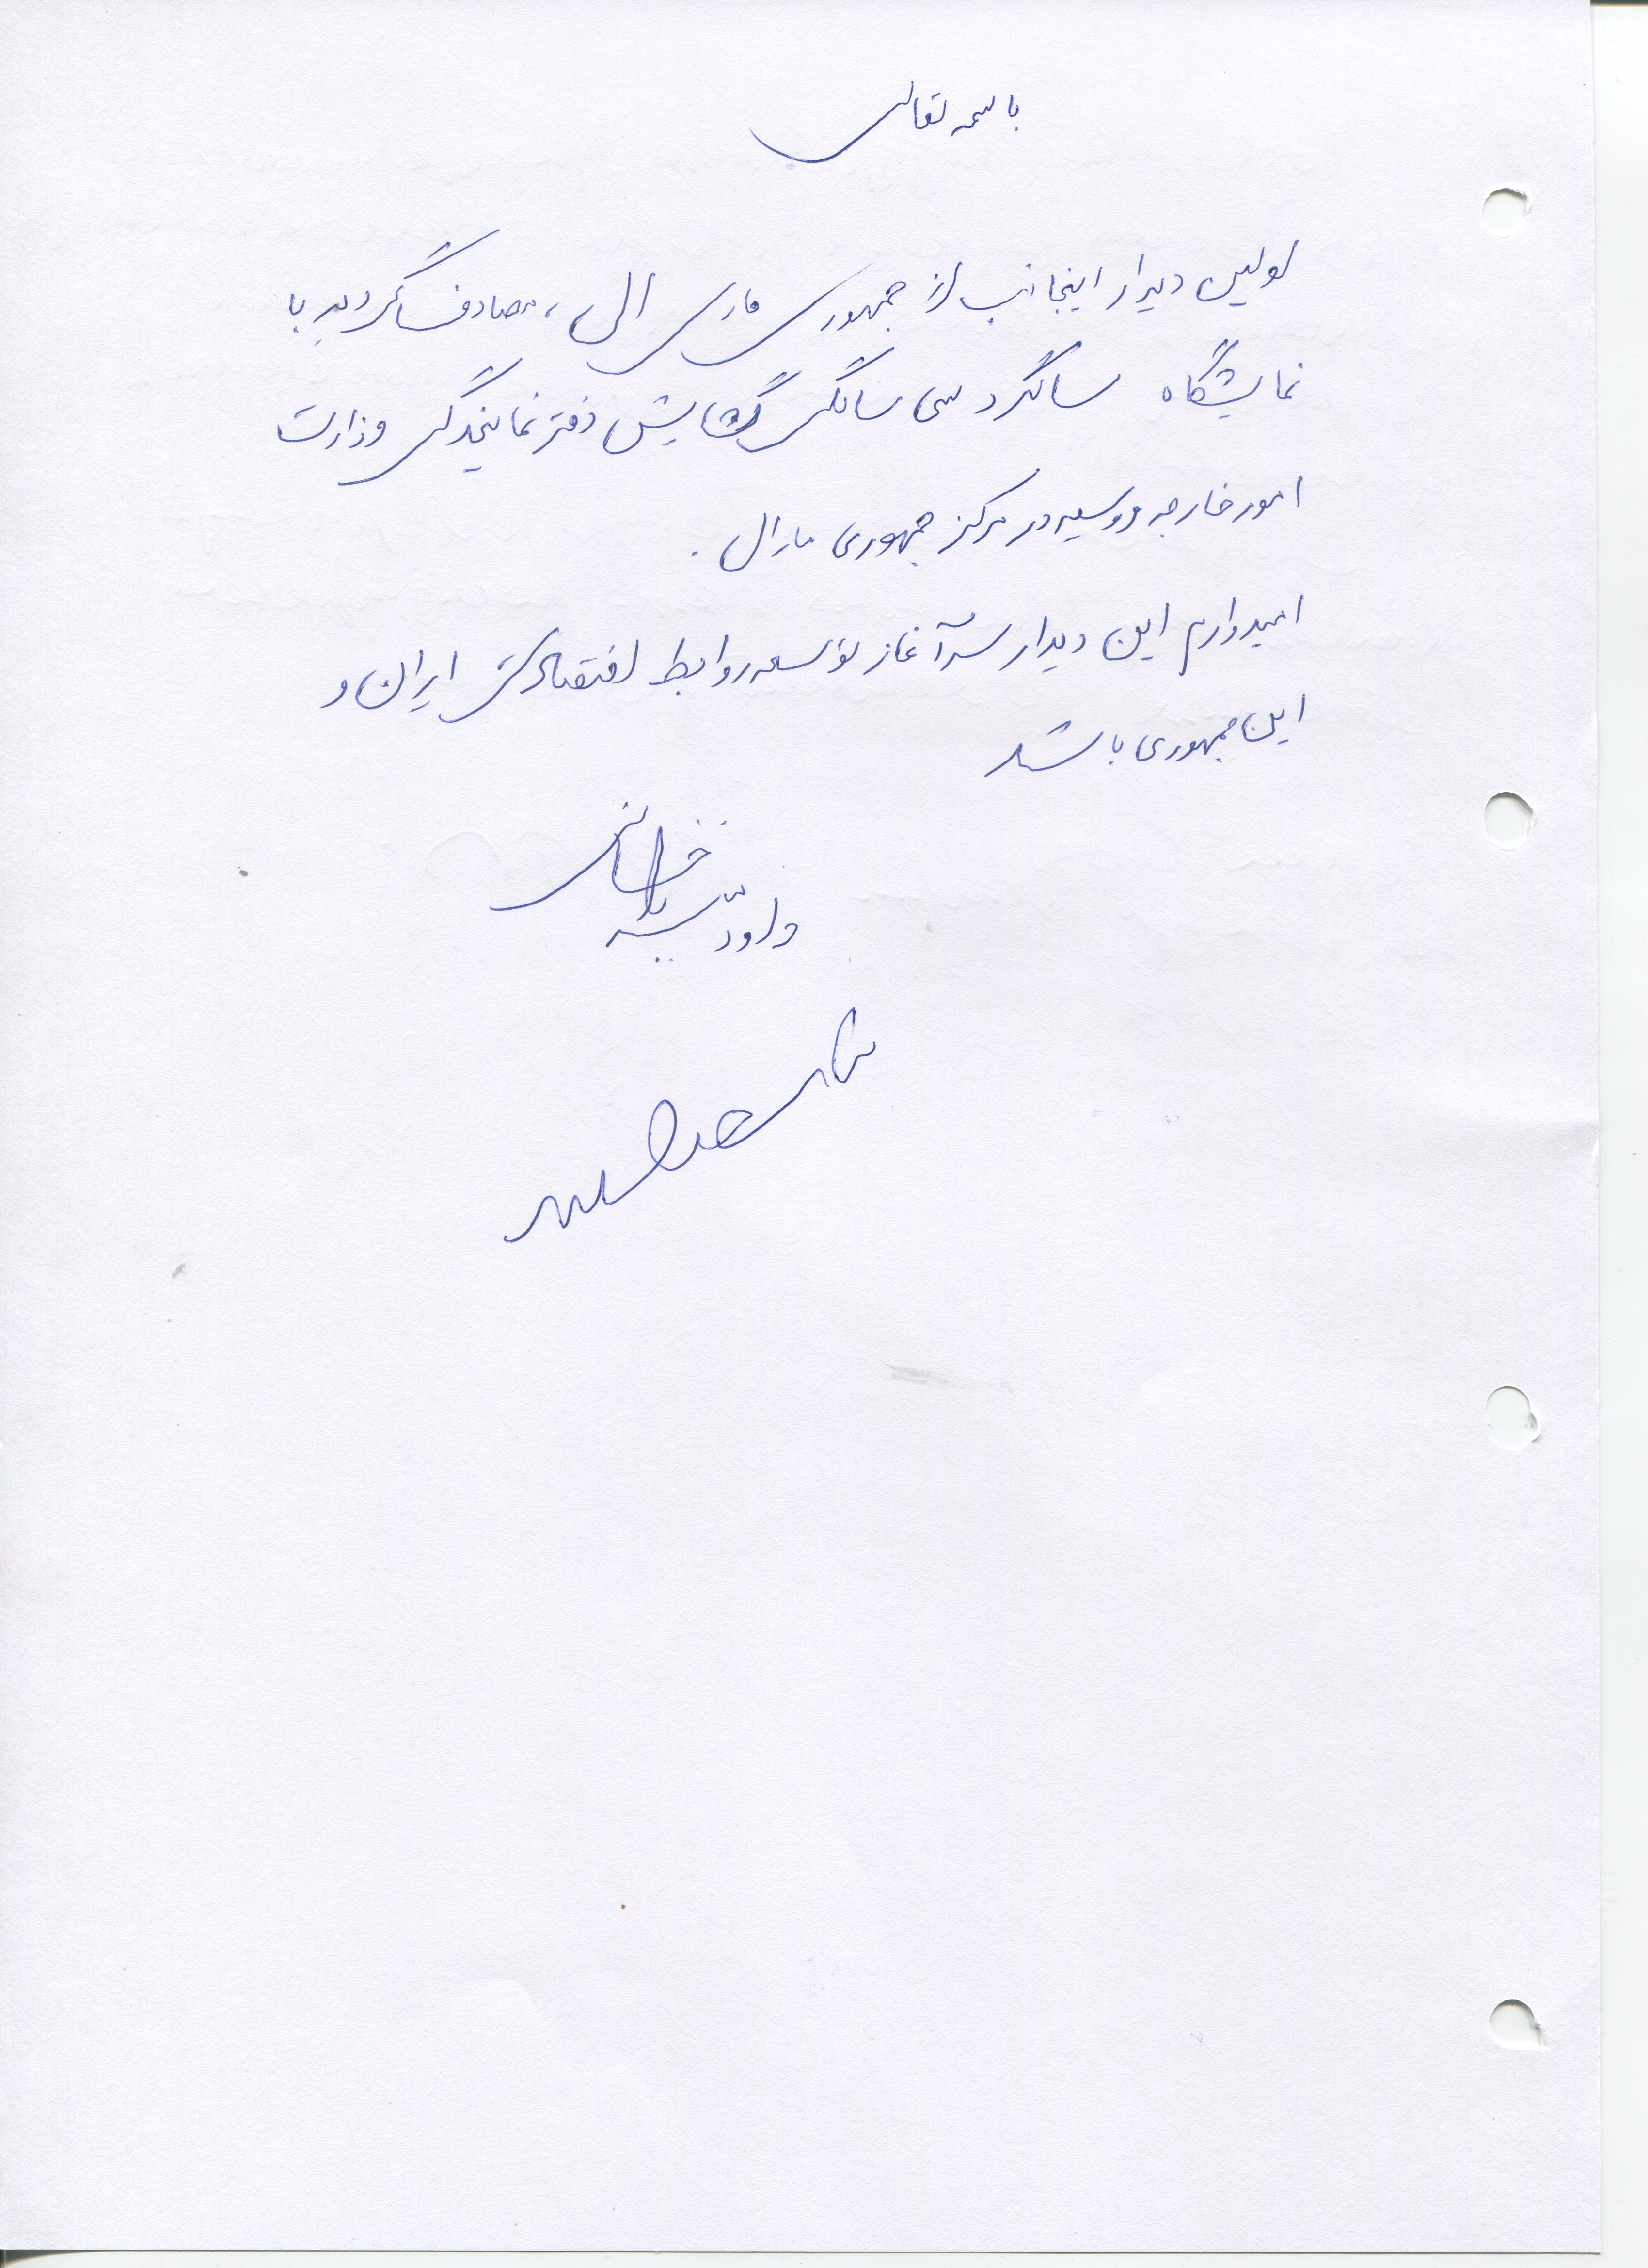 باسمه تعالی
اولین دیدار اینجانب از جمهوری ماری ال، مصادف گردید با
نمایشگاه سالگرد سی سالگی گشایش دفتر نمایندگی وزارت
امور خارجه روسیه در مرکز جمهوری ماری ال.
امیدوارم این دیدار سرآغاز توسعه روابط اقتصادی ایران و
این جمهوری باشد
داود